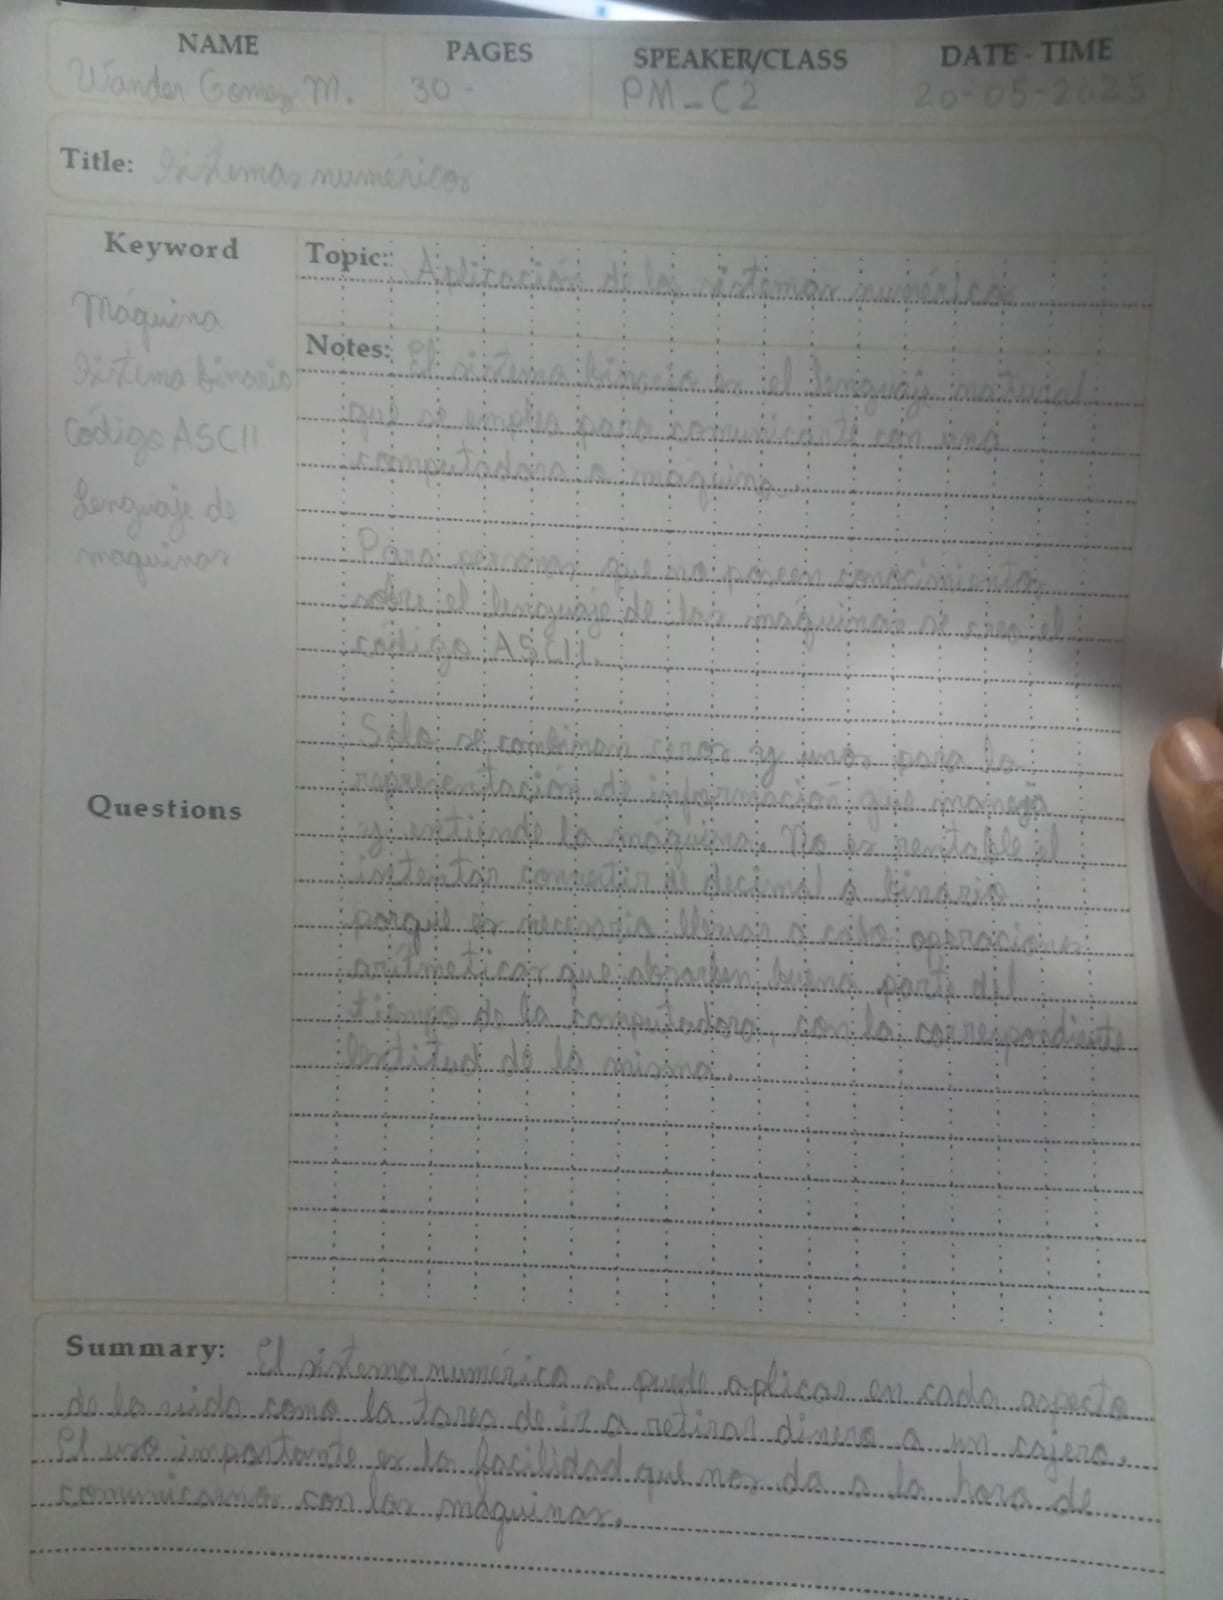 NAME PAGES SPEAKER/CLASS DATE - TIME
Wander Gomez M. 30- PM-C2 20-05-2025
Title: Sistemas numéricos
Keyword
Máquina
Sistema binario
Código ASCII
Lenguaje de
maquinas
Questions
Topic: Aplicación de los sistemas numéricos
Notes: El sistema binario es el lenguaje natural
que se emplea para comunicarte con una
computadora o máquina.
Para personas que no poseen conocimientos
sobre el lenguaje de las máquinas se creo el
código ASCII.
Solo se combinan ceros y unos para la
representación de información que maneja
y entiende la máquina. No es rentable el
intentar convertir de decimal a binario
porque es necesario llevar a cabo operaciones
aritmeticas que absorben buena parte del
tiempo de la computadora, con la correspondiente
lentitud de la misma.
Summary: El sistema numérico se puede aplicar en cada aspecto
de la vida como la tarea de ir a retirar dinero a un cajero.
El uso importante es la facilidad que nos da a la hora de
comunicarnos con las máquinas.